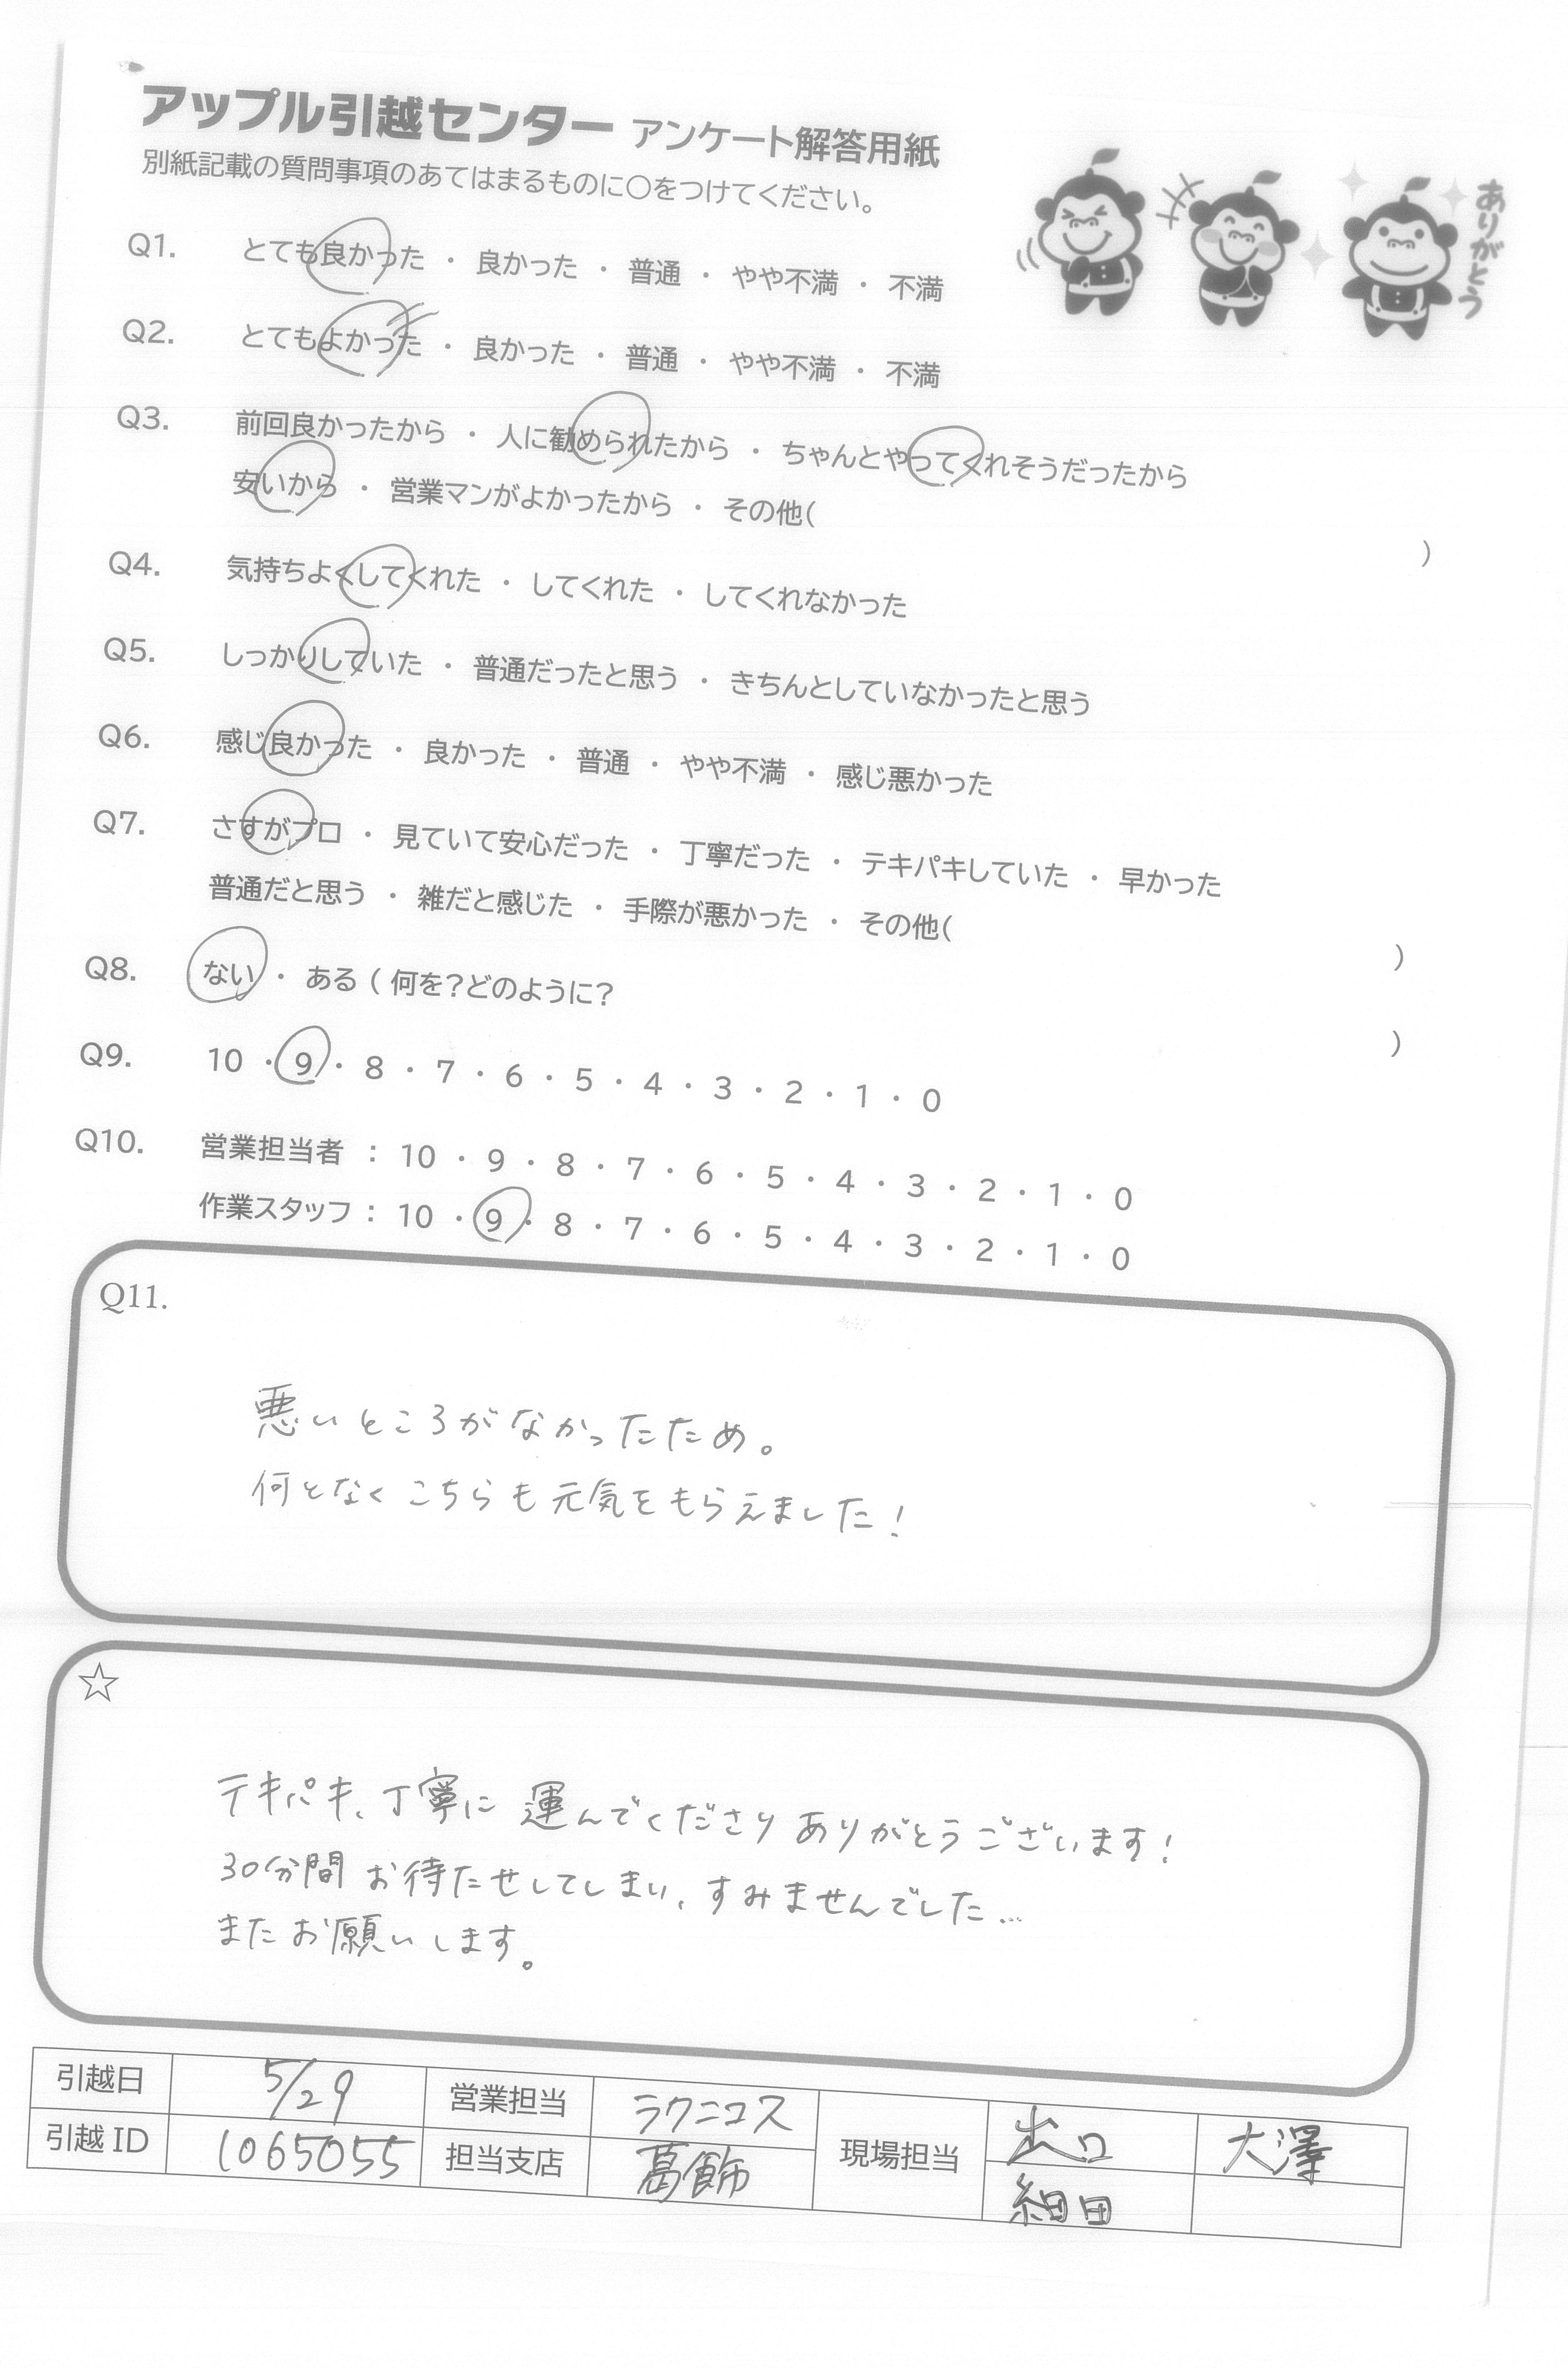 アップル引越センター アンケート解答用紙
別紙記載の質問事項のあてはまるものに○をつけてください。
ありがとう
Q1. とても良かった ・ 良かった ・ 普通 ・ やや不満 ・ 不満
Q2. とてもよかった ・ 良かった ・ 普通 ・ やや不満 ・ 不満
Q3. 前回良かったから ・ 人に勧められたから ・ ちゃんとやってくれそうだったから
安いから ・ 営業マンがよかったから ・ その他( )
Q4. 気持ちよくしてくれた ・ してくれた ・ してくれなかった
Q5. しっかりしていた ・ 普通だったと思う ・ きちんとしていなかったと思う
Q6. 感じ良かった ・ 良かった ・ 普通 ・ やや不満 ・ 感じ悪かった
Q7. さすがプロ ・ 見ていて安心だった ・ 丁寧だった ・ テキパキしていた ・ 早かった
普通だと思う ・ 雑だと感じた ・ 手際が悪かった ・ その他( )
Q8. ない ・ ある ( 何を?どのように? )
Q9. 10 ・ 9 ・ 8 ・ 7 ・ 6 ・ 5 ・ 4 ・ 3 ・ 2 ・ 1 ・ 0
Q10. 営業担当者 : 10 ・ 9 ・ 8 ・ 7 ・ 6 ・ 5 ・ 4 ・ 3 ・ 2 ・ 1 ・ 0
作業スタッフ : 10 ・ 9 ・ 8 ・ 7 ・ 6 ・ 5 ・ 4 ・ 3 ・ 2 ・ 1 ・ 0
Q11.
悪いところがなかったため。
何となくこちらも元気をもらえました!
☆
テキパキ、丁寧に運んでくださりありがとうございます!
30分間お待たせしてしまい、すみませんでした…
またお願いします。
引越日 5/29 営業担当 ラクニコス 現場担当 出口 大澤
引越ID 1065055 担当支店 葛飾 細田